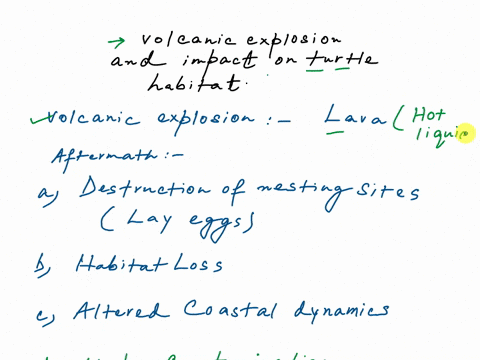 → volcanic explosion
and impact on turtle
habitat.
✓volcanic explosion :- Lava (Hot
liquid
Aftermath :-
a) Destruction of nesting sites
(Lay eggs)
b) Habitat Loss
c) Altered Coastal dynamics